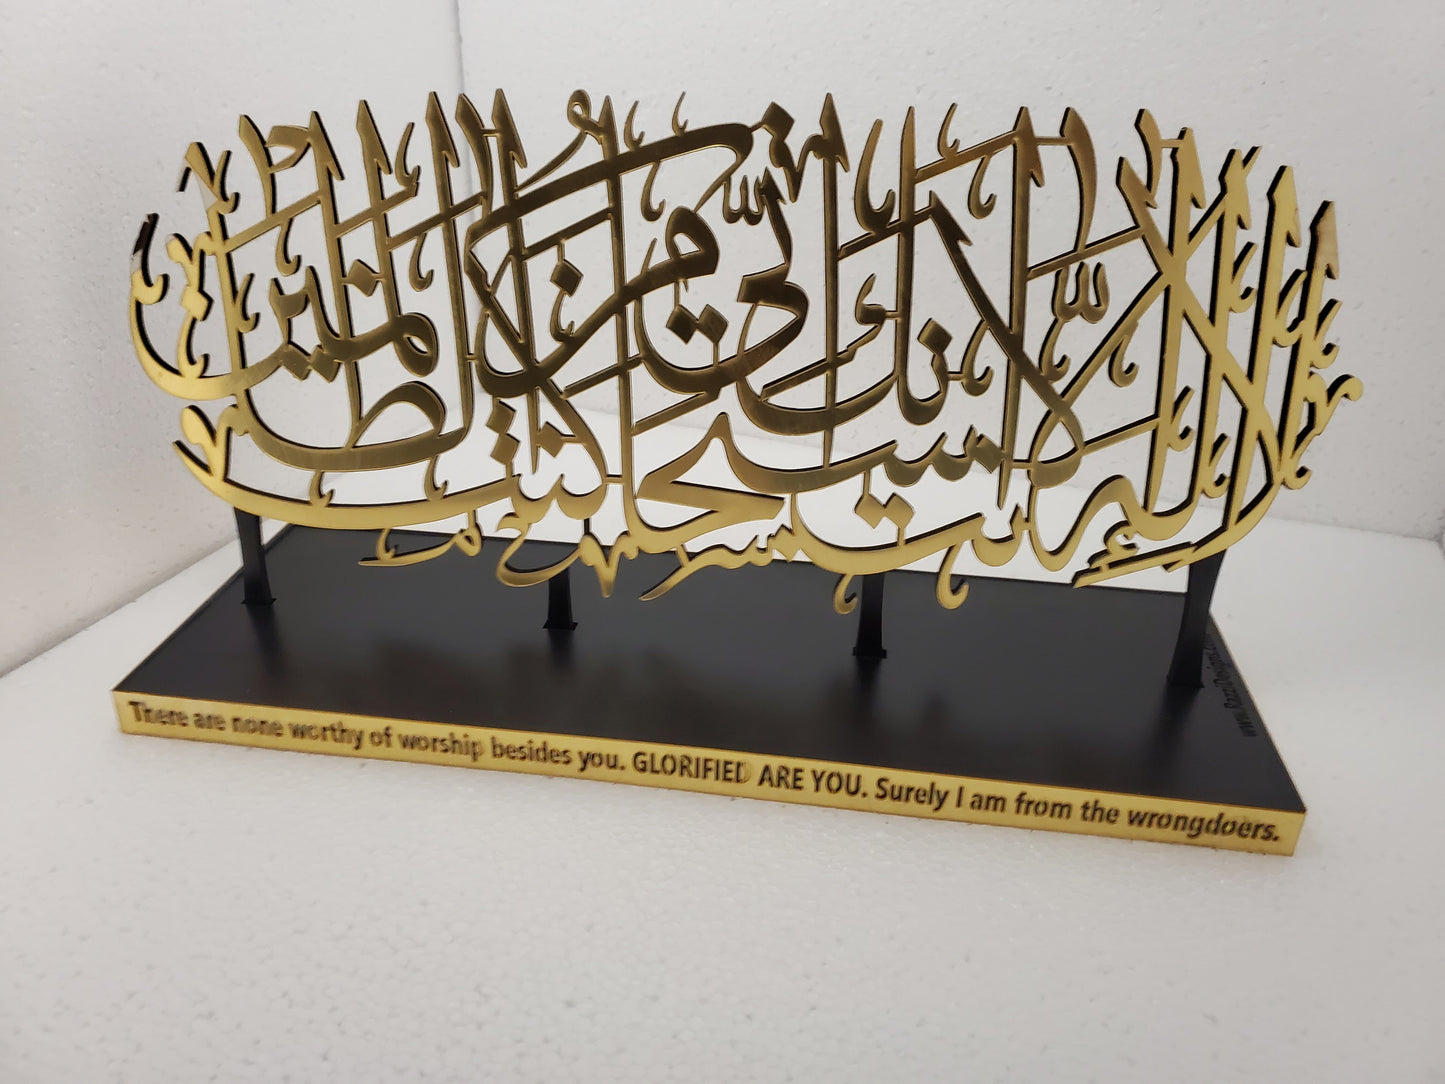 لا إله إلا أنت سبحانك إني كنت من الظالمين
There are none worthy of worship besides you. GLORIFIED ARE YOU. Surely I am from the wrongdoers.
www.RazziDesigns.com